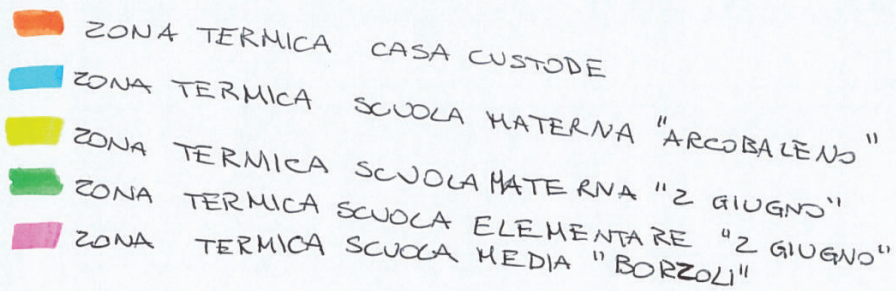 ZONA TERMICA CASA CUSTODE
ZONA TERMICA SCUOLA MATERNA "ARCOBALENO"
ZONA TERMICA SCUOLA MATERNA "2 GIUGNO"
ZONA TERMICA SCUOLA ELEMENTARE "2 GIUGNO"
ZONA TERMICA SCUOLA MEDIA "BORZOLI"